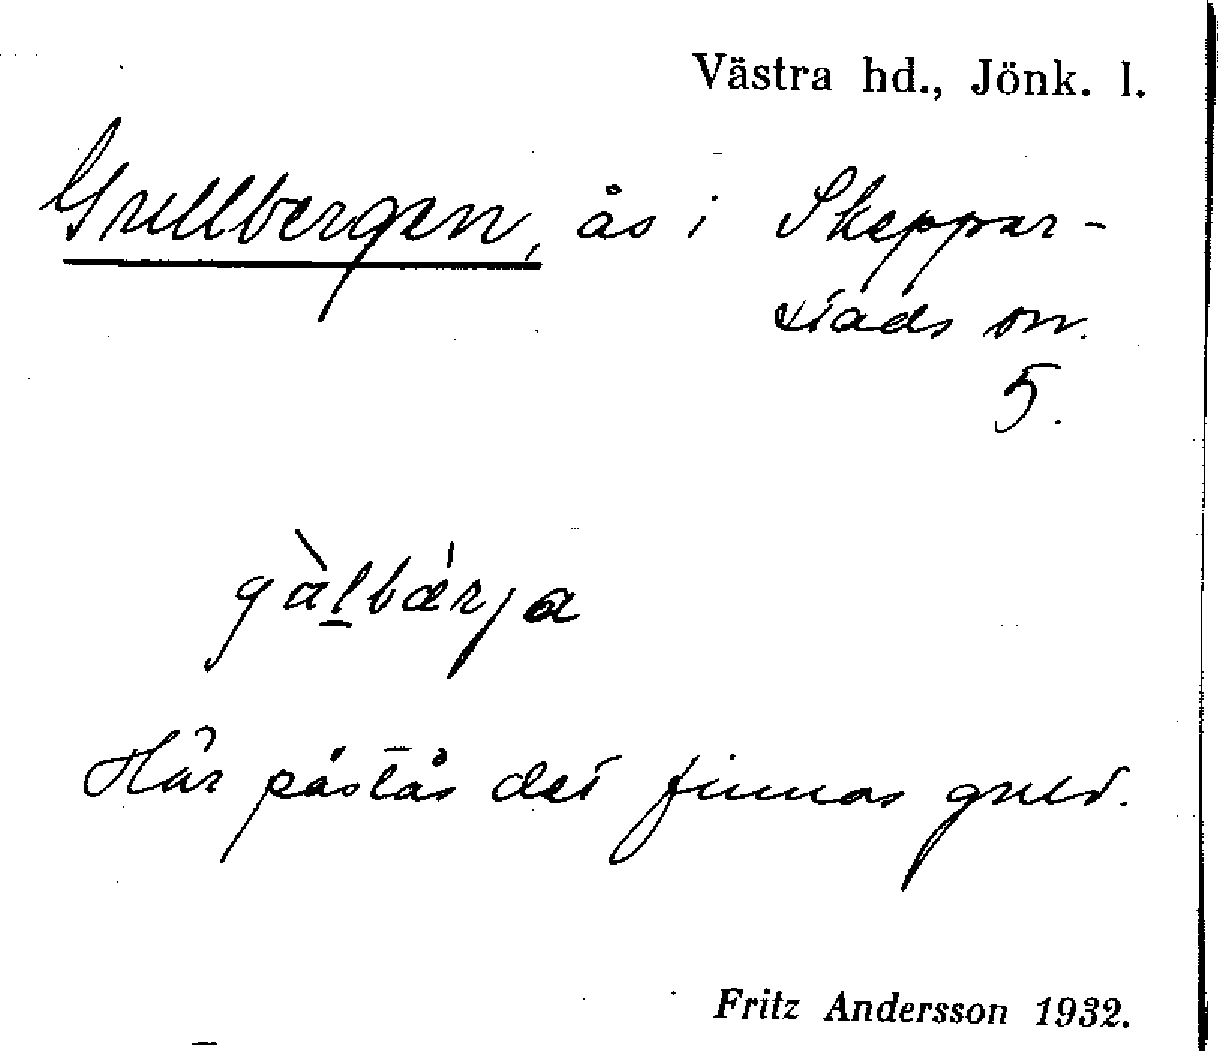 Västra hd., Jönk. l.
Gullbergen, ås i Skeppar-
stads on.
5.
gàlbǽrja
Här påstås det finnas guld.
Fritz Andersson 1932.